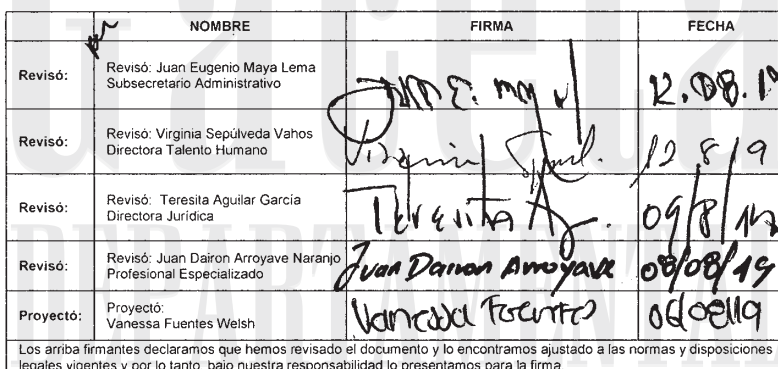 NOMBRE FIRMA FECHA
Revisó: Revisó: Juan Eugenio Maya Lema
Subsecretario Administrativo
Juan E. Maya L 12.08.19
Revisó: Revisó: Virginia Sepúlveda Vahos
Directora Talento Humano
Virginia 12/8/19
Revisó: Revisó: Teresita Aguilar García
Directora Jurídica
Teresita A. 09/8/19
Revisó: Revisó: Juan Dairon Arroyave Naranjo
Profesional Especializado
Juan Dairon Arroyave 08/08/19
Proyectó: Proyectó:
Vanessa Fuentes Welsh
Vanessa Fuentes
Los arriba firmantes declaramos que hemos revisado el documento y lo encontramos ajustado a las normas y disposiciones
legales vigentes y por lo tanto, bajo nuestra responsabilidad lo presentamos para la firma